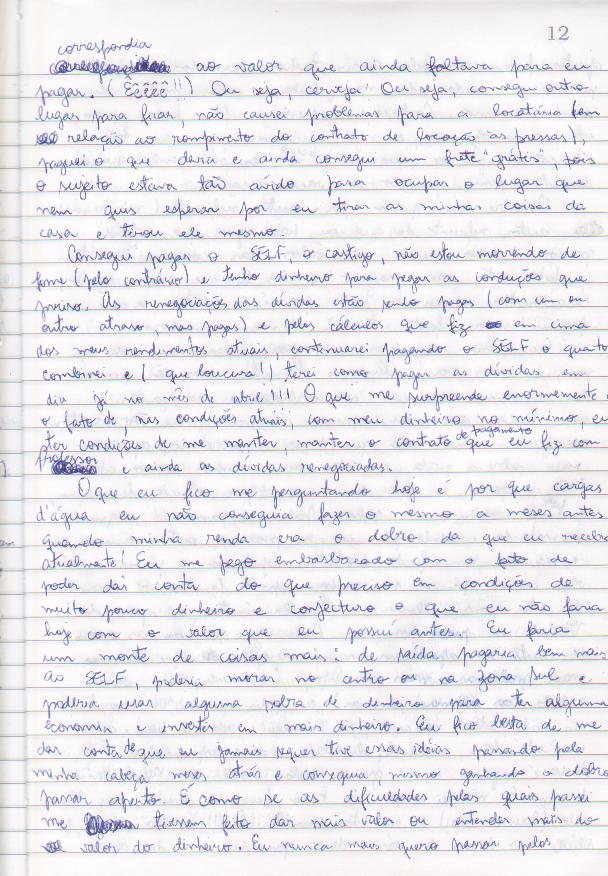 12
correspondia
ao valor que ainda faltava para eu
pagar. (Êêêêê!!) Ou seja, cerveja! Ou seja, consegui outro
lugar para ficar, não causei problemas para a locatária (em
relação ao rompimento do contrato de locação às pressas),
paguei o que devia e ainda consegui um frete "grátis", pois
o sujeito estava tão ávido para ocupar o lugar que
nem quis esperar por eu tirar as minhas coisas da
casa e tirou ele mesmo.
Consegui pagar o SELF, o castigo, não estou morrendo de
fome (pelo contrário) e tenho dinheiro para pegar as conduções que
preciso. As renegociações das dívidas estão sendo pagas (com um ou
outro atraso, mas pagas) e pelos cálculos que fiz em cima
dos meus rendimentos atuais, continuarei pagando o SELF o quanto
combinei e (que loucura!) terei como pagar as dívidas em
dia já no mês de abril!!! O que me surpreende enormemente é
o fato de, nas condições atuais, com meu dinheiro no mínimo, eu
ter condições de me manter, manter o contrato de pagamento que eu fiz com
professor e ainda as dívidas renegociadas.
O que eu fico me perguntando hoje é por que cargas
d'água eu não conseguia fazer o mesmo a meses antes
quando minha renda era o dobro da que eu recebo
atualmente! Eu me pego embasbacado com o fato de
poder dar conta do que preciso em condições de
muito pouco dinheiro e conjecturo o que eu não faria
hoje com o valor que eu possuí antes. Eu faria
um monte de coisas mais: de saída pagaria bem mais
ao SELF, poderia morar no centro ou na zona sul e
poderia usar alguma sobra de dinheiro para ter alguma
economia e investir em mais dinheiro. Eu fico besta de me
dar conta de que eu jamais sequer tive essas idéias passando pela
minha cabeça meses atrás e conseguia mesmo ganhando o dobro
passar aperto. É como se as dificuldades pelas quais passei
me tivessem feito dar mais valor ou entender mais do
valor do dinheiro. Eu nunca mais quero passar pelos